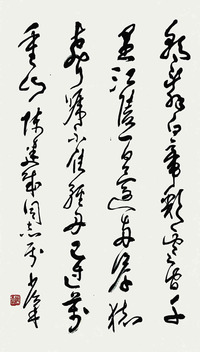 朝辭白帝彩雲間千
里江陵一日還兩岸猿
聲啼不住輕舟已過萬
重山 同志